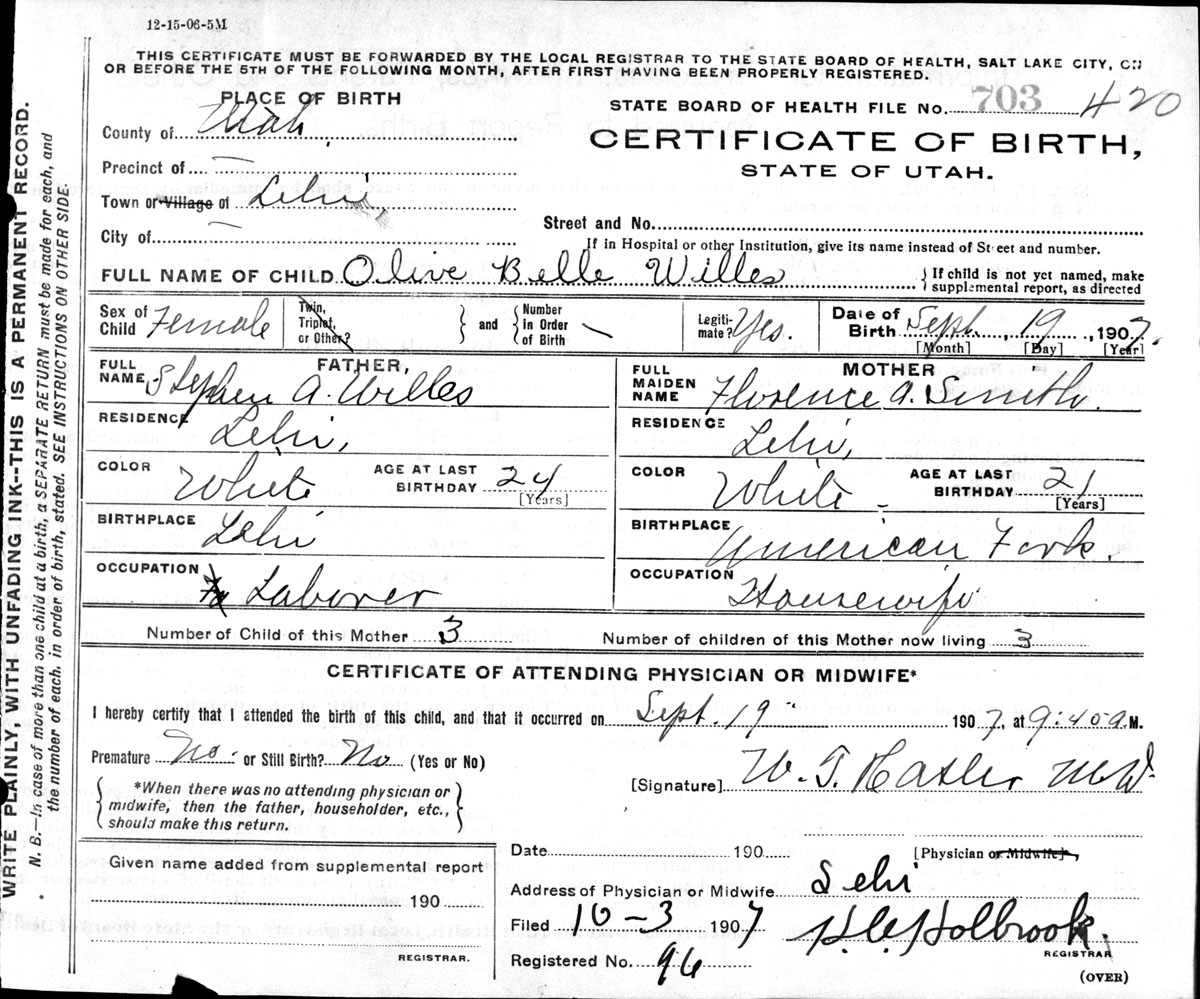 12-15-06-5M
THIS CERTIFICATE MUST BE FORWARDED BY THE LOCAL REGISTRAR TO THE STATE BOARD OF HEALTH, SALT LAKE CITY, ON
OR BEFORE THE 5TH OF THE FOLLOWING MONTH, AFTER FIRST HAVING BEEN PROPERLY REGISTERED.
PLACE OF BIRTH
STATE BOARD OF HEALTH FILE No. 703 420
County of Utah,
CERTIFICATE OF BIRTH,
STATE OF UTAH.
Precinct of —
Town or Village of Lehi,
City of —
Street and No.
If in Hospital or other Institution, give its name instead of Street and number.
FULL NAME OF CHILD Olive Belle Willes
{ If child is not yet named, make supplemental report, as directed
Sex of Child Female
Twin, Triplet, or Other? } and { Number In Order of Birth —
Legitimate? Yes.
Date of Birth Sept. 19, 1907.
[Month] [Day] [Year]
FATHER,
FULL NAME Stephen A. Willes
RESIDENCE Lehi,
COLOR White AGE AT LAST BIRTHDAY 24 [Years]
BIRTHPLACE Lehi
OCCUPATION Laborer
MOTHER
FULL MAIDEN NAME Florence A. Smith.
RESIDENCE Lehi,
COLOR White AGE AT LAST BIRTHDAY 21 [Years]
BIRTHPLACE American Fork.
OCCUPATION Housewife
Number of Child of this Mother 3 Number of children of this Mother now living 3
CERTIFICATE OF ATTENDING PHYSICIAN OR MIDWIFE*
I hereby certify that I attended the birth of this child, and that it occurred on Sept. 19 1907, at 9:40 A.M.
Premature No. or Still Birth? No (Yes or No)
*When there was no attending physician or
midwife, then the father, householder, etc.,
should make this return.
[Signature] W. T. Hasler M.D.
Date 190 [Physician or Midwife]
Given name added from supplemental report
190
REGISTRAR.
Address of Physician or Midwife Lehi
Filed 10-3 1907 H.C. Holbrook.
REGISTRAR
Registered No. 96
(OVER)
WRITE PLAINLY, WITH UNFADING INK--THIS IS A PERMANENT RECORD.
N. B.—In case of more than one child at a birth, a SEPARATE RETURN must be made for each, and
the number of each, in order of birth, stated. SEE INSTRUCTIONS ON OTHER SIDE.